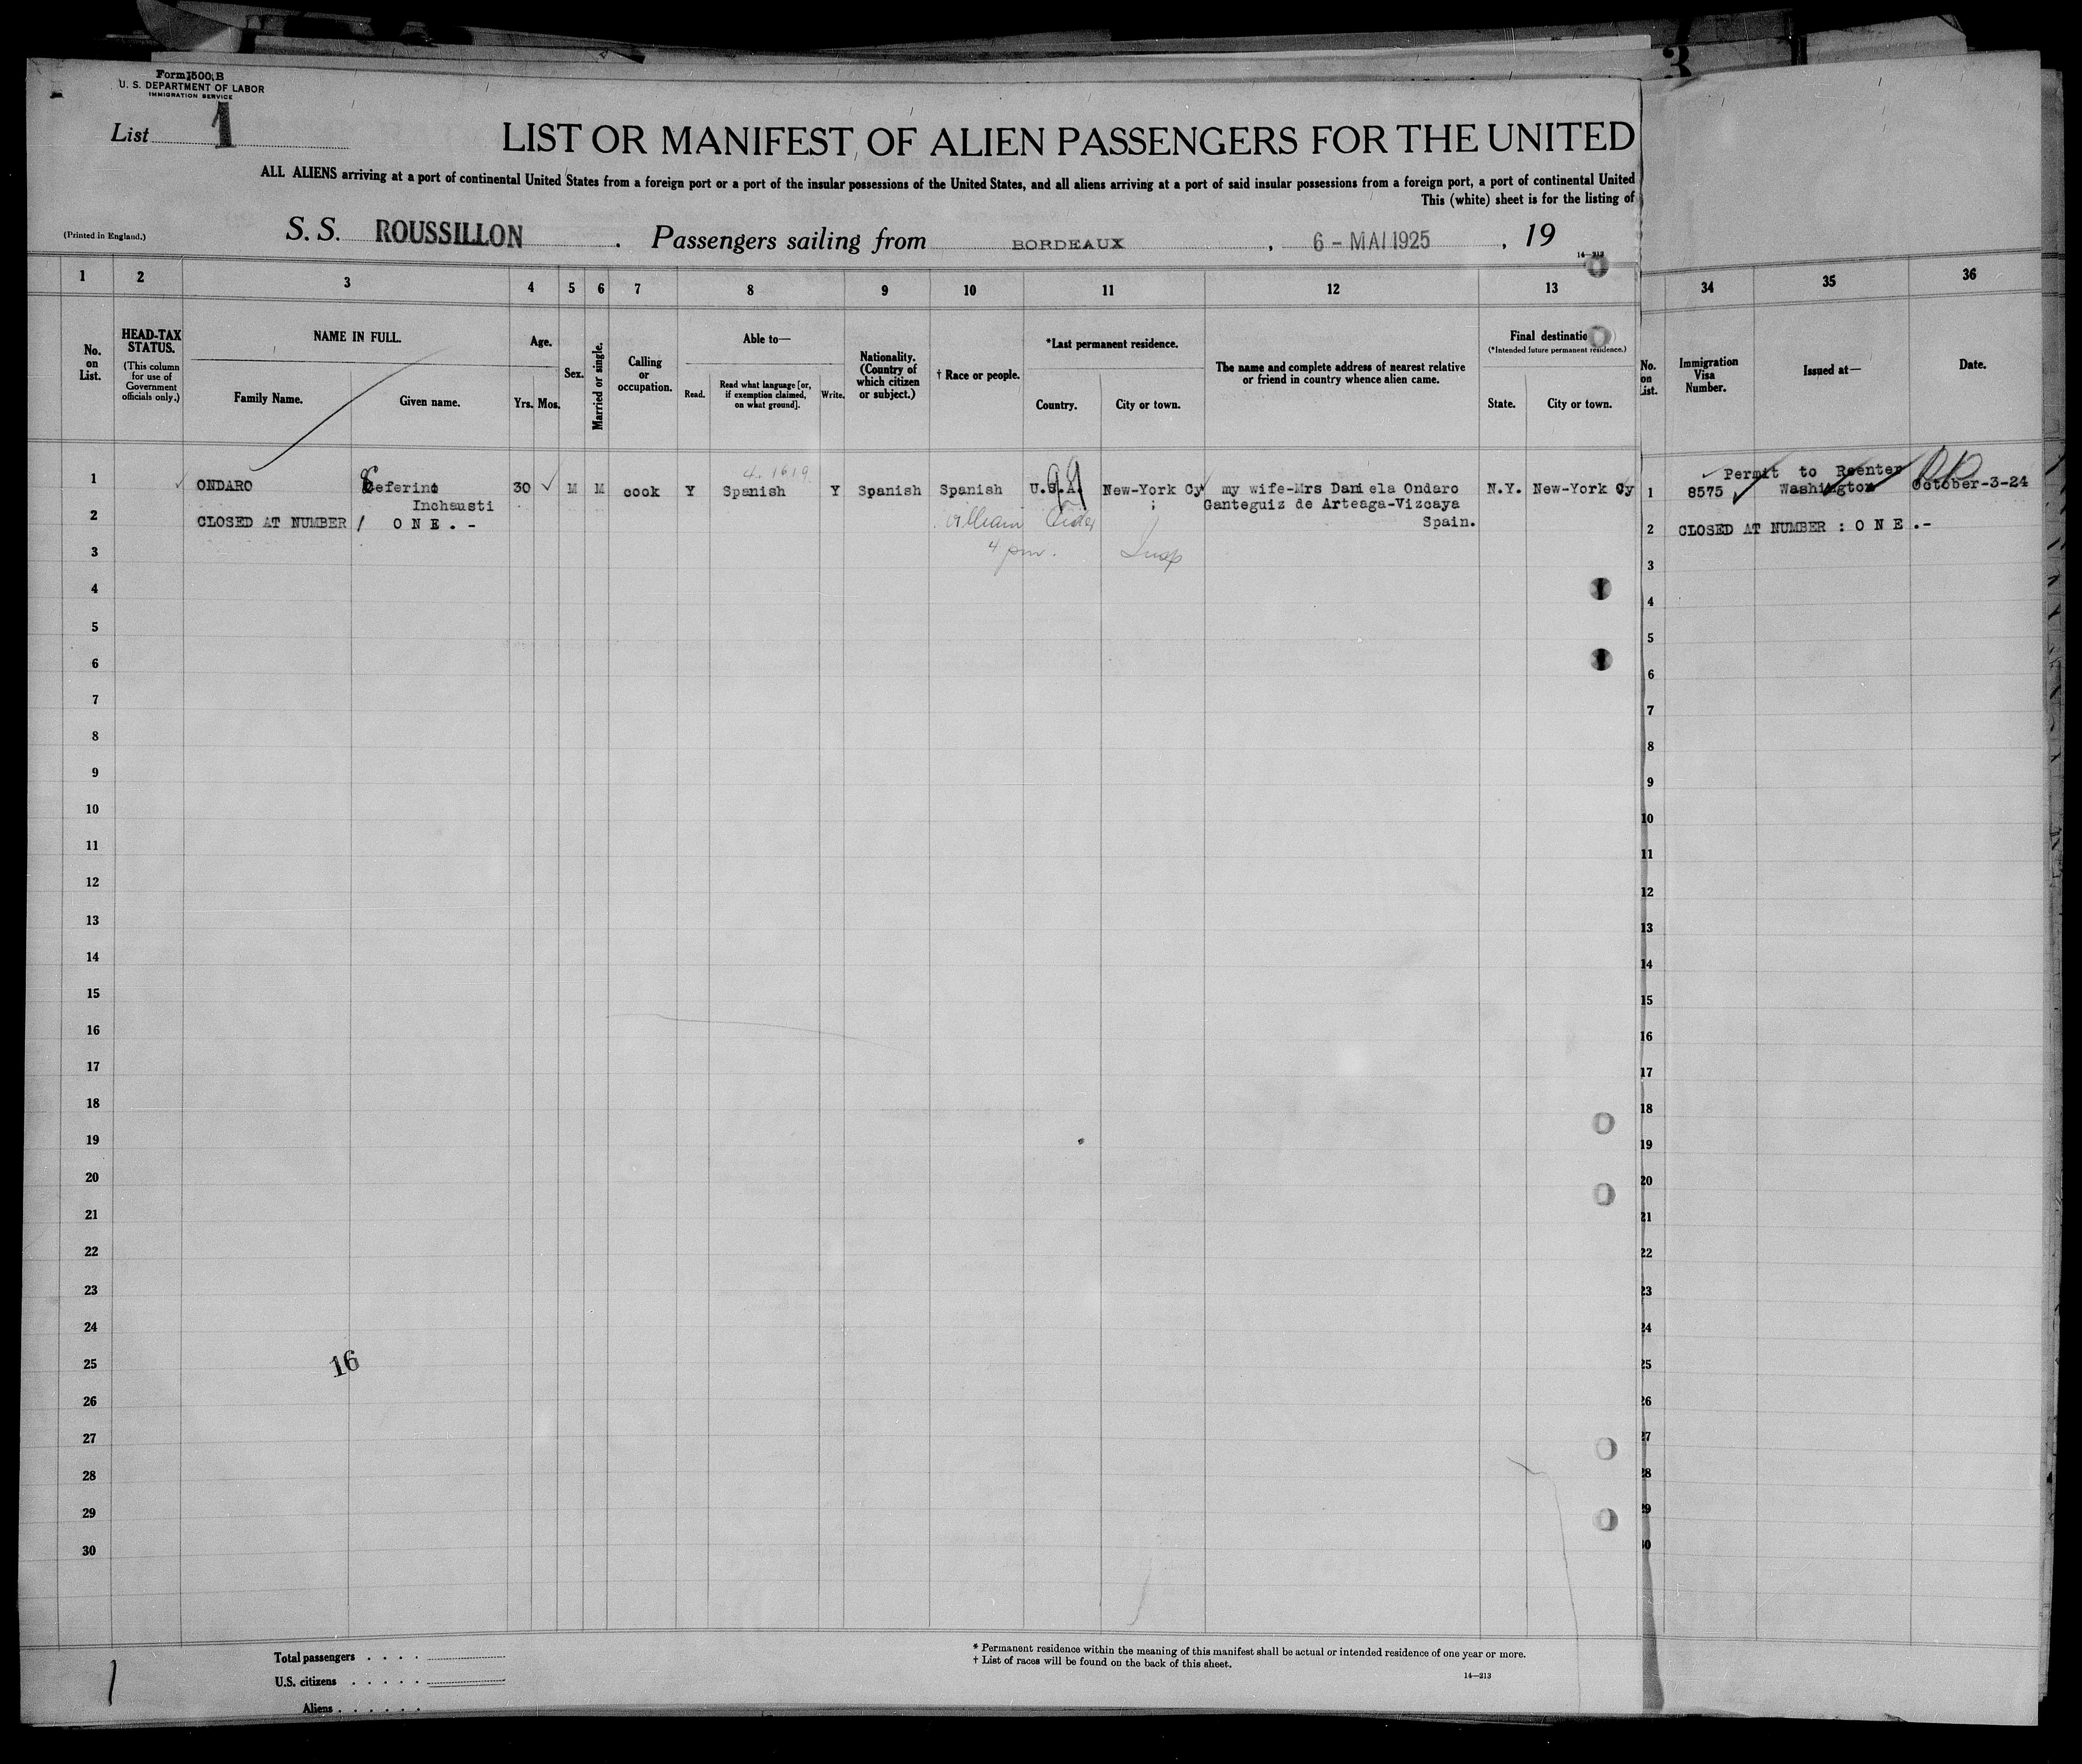 3
Form 1500 B
U. S. DEPARTMENT OF LABOR
IMMIGRATION SERVICE
List 1
LIST OR MANIFEST OF ALIEN PASSENGERS FOR THE UNITED
ALL ALIENS arriving at a port of continental United States from a foreign port or a port of the insular possessions of the United States, and all aliens arriving at a port of said insular possessions from a foreign port, a port of continental United
This (white) sheet is for the listing of
(Printed in England.)
S. S. ROUSSILLON . Passengers sailing from BORDEAUX , 6 - MAI 1925 , 19
14—213
1 2 3 4 5 6 7 8 9 10 11 12 13 34 35 36
No. on List.
HEAD-TAX STATUS.
(This column for use of Government officials only.)
NAME IN FULL.
Family Name. Given name.
Age.
Yrs. Mos.
Sex.
Married or single.
Calling or occupation.
Able to—
Read. Read what language [or, if exemption claimed, on what ground]. Write.
Nationality. (Country of which citizen or subject.)
† Race or people.
*Last permanent residence.
Country. City or town.
The name and complete address of nearest relative or friend in country whence alien came.
Final destinatio
(*Intended future permanent residence.)
State. City or town.
No. on List.
Immigration Visa Number.
Issued at—
Date.
4. 1619
Permit to Reenter
1 ONDARO Ceferino 30 M M cook Y Spanish Y Spanish Spanish U.S.A. New-York Cy my wife-Mrs Daniela Ondaro N.Y. New-York Cy 1 8575 Washington October-3-24
Inchausti Ganteguiz de Arteaga-Vizcaya
2 CLOSED AT NUMBER / O N E . - William Spain. 2 CLOSED AT NUMBER : O N E .-
3 4 pm. Insp 3
4 4
5 5
6 6
7 7
8 8
9 9
10 10
11 11
12 12
13 13
14 14
15 15
16 16
17 17
18 18
19 19
20 20
21 21
22 22
23 23
24 24
25 16 25
26 26
27 27
28 28
29 29
30 30
Total passengers . . . .
U.S. citizens . . . . .
Aliens . . . . . .
* Permanent residence within the meaning of this manifest shall be actual or intended residence of one year or more.
† List of races will be found on the back of this sheet.
14—213